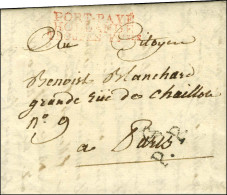 PORT PAYÉ
Au Citoyen
Benoist Blanchard
grande rüe de chaillot
n° 9
a Paris
P.P.